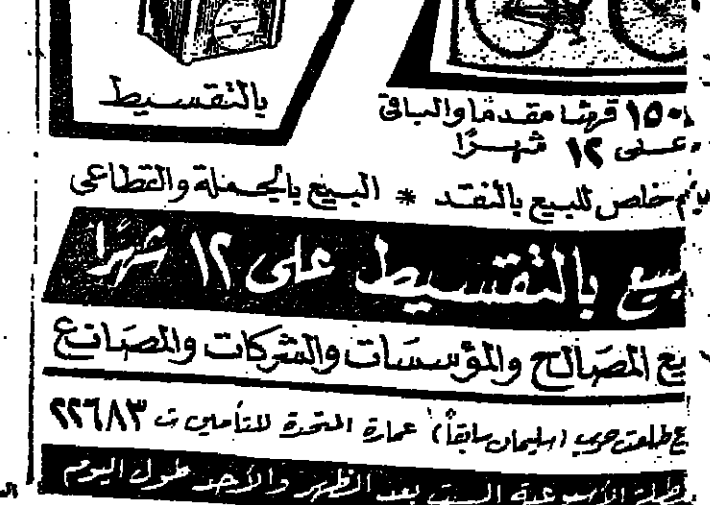 بالتقسيط
١٥٠ قرشا مقدما والباقى
على ١٢ شهرًا
خاص للبيع بالنقد * البيع بالجملة والقطاعى
بيع بالتقسيط على ١٢ شهرًا
المصالح والمؤسسات والشركات والمصانع
طلعت حرب (سليمان سابقاً) عمارة المتحدة للتأمين ت ٢٢٦٨٣
الأسبوعية السبت بعد الظهر والأحد طول اليوم